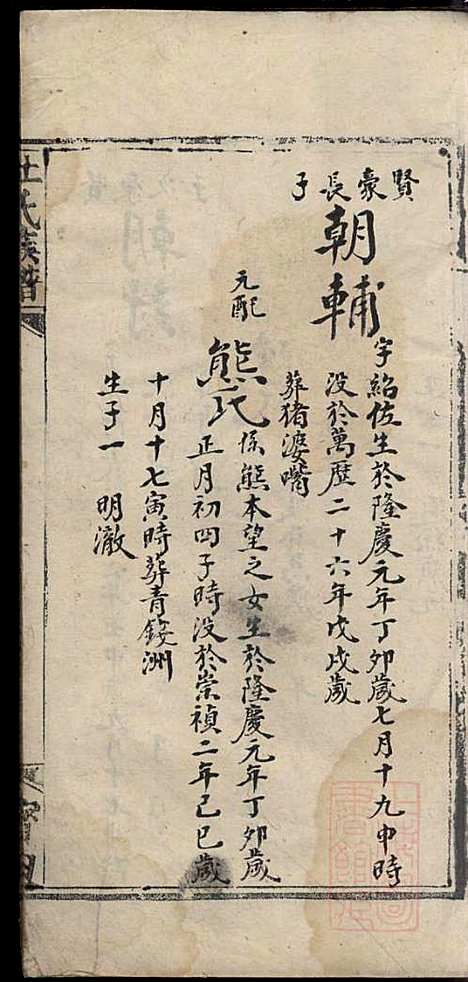 賢豪長子
朝輔
字紹佐生於隆慶元年丁卯歲七月十九申時
没於萬歷二十六年戊戌歲
葬猪婆嘴
元配
熊氏
係熊本望之女生於隆慶元年丁卯歲
正月初四子時没於崇禎二年己巳歲
十月十七寅時葬青鋑洲
生子一 明澈
杜氏族譜